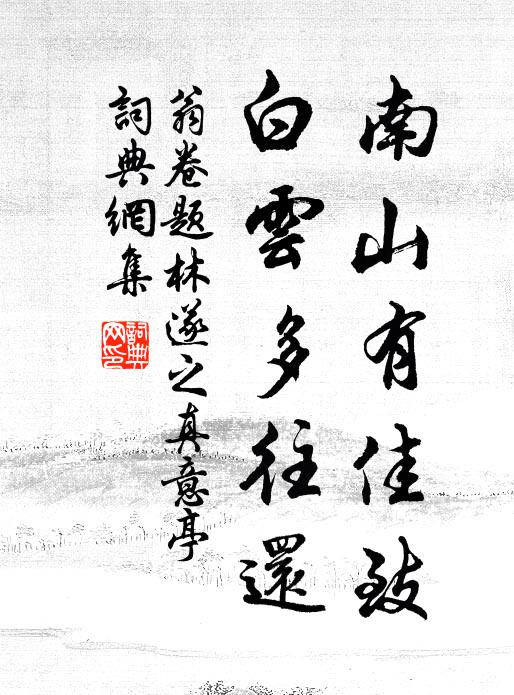 南山有佳致
白雲多往還
翁卷題林遂之真意亭
詞典網集
詞典網印